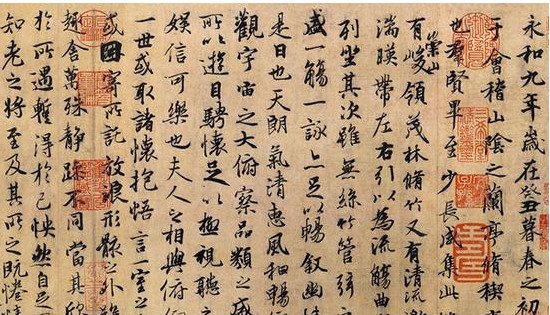 永和九年歲在癸丑暮春之初
于會稽山陰之蘭亭脩稧
也羣賢畢至少長咸集此
有崇山峻領茂林脩竹又有清流
湍暎帶左右引以為流觴曲
列坐其次雖無絲竹管弦
盛一觴一詠亦足以暢敘幽
是日也天朗氣清惠風和暢
觀宇宙之大俯察品類之盛
所以遊目騁懷足以極視聽之
娛信可樂也夫人之相與俯
一世或取諸懷抱悟言一室之
或因寄所託放浪形骸之外雖
趣舍萬殊靜躁不同當其欣
於所遇暫得於己怏然自足
知老之將至及其所之既惓情